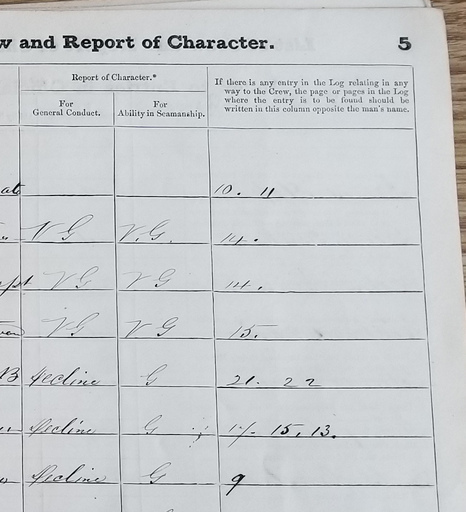 w and Report of Character. 5
Report of Character.*
For General Conduct.
For Ability in Seamanship.
If there is any entry in the Log relating in any
way to the Crew, the page or pages in the Log
where the entry is to be found should be
written in this column opposite the man's name.
10. 11
V G V.G. 14.
V G V G 14.
V G V G 15.
B Decline G 21. 22
Decline G 15, 13.
Decline G 9